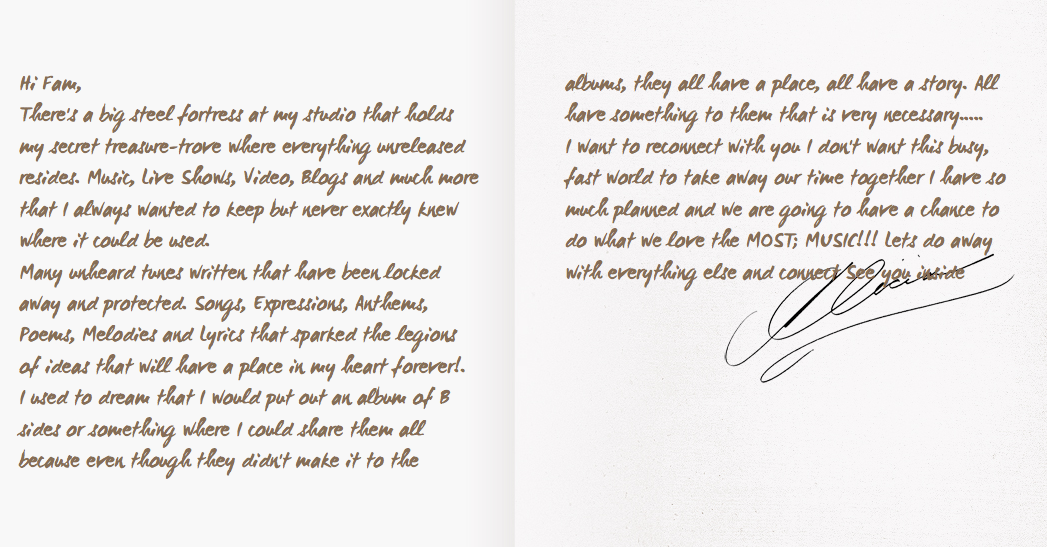 Hi Fam,
There's a big steel fortress at my studio that holds
my secret treasure-trove where everything unreleased
resides. Music, Live Shows, Video, Blogs and much more
that I always wanted to keep but never exactly knew
where it could be used.
Many unheard tunes written that have been locked
away and protected. Songs, Expressions, Anthems,
Poems, Melodies and Lyrics that sparked the legions
of ideas that will have a place in my heart forever!.
I used to dream that I would put out an album of B
sides or something where I could share them all
because even though they didn't make it to the
albums, they all have a place, all have a story. All
have something to them that is very necessary.....
I want to reconnect with you I don't want this busy,
fast world to take away our time together I have so
much planned and we are going to have a chance to
do what we love the MOST; MUSIC!!! Lets do away
with everything else and connect See you inside